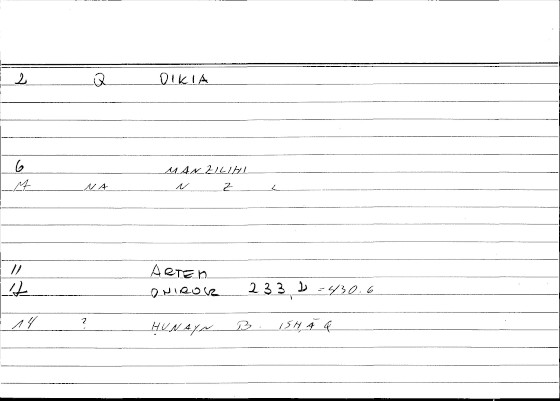 2 Q DIKIA
6 MANZILIHI
M NA N Z L
11 ARTEM
12 ONIROCR 233, D = 430.6
14 ? ḤUNAYN B. ISḤĀQ